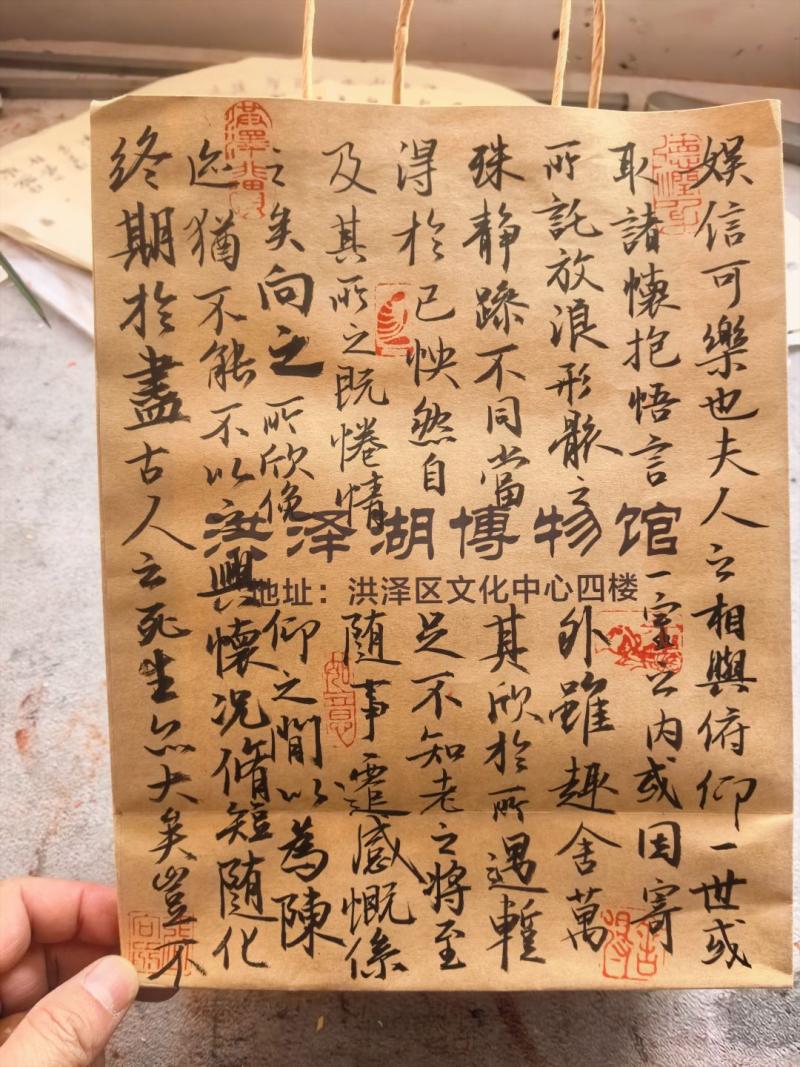 娱信可樂也夫人之相與俯仰一世或
取諸懷抱悟言一室之内或因寄
所託放浪形骸之外雖趣舍萬
殊静躁不同當其欣於所遇暫
得於己怏然自足不知老之將至
及其所之既惓情随事遷感慨係
之矣向之所欣俛仰之間以為陳
迹猶不能不以之興懷况脩短随化
終期於盡古人云死生亦大矣豈不
洪泽湖博物馆
地址：洪泽区文化中心四楼
如意